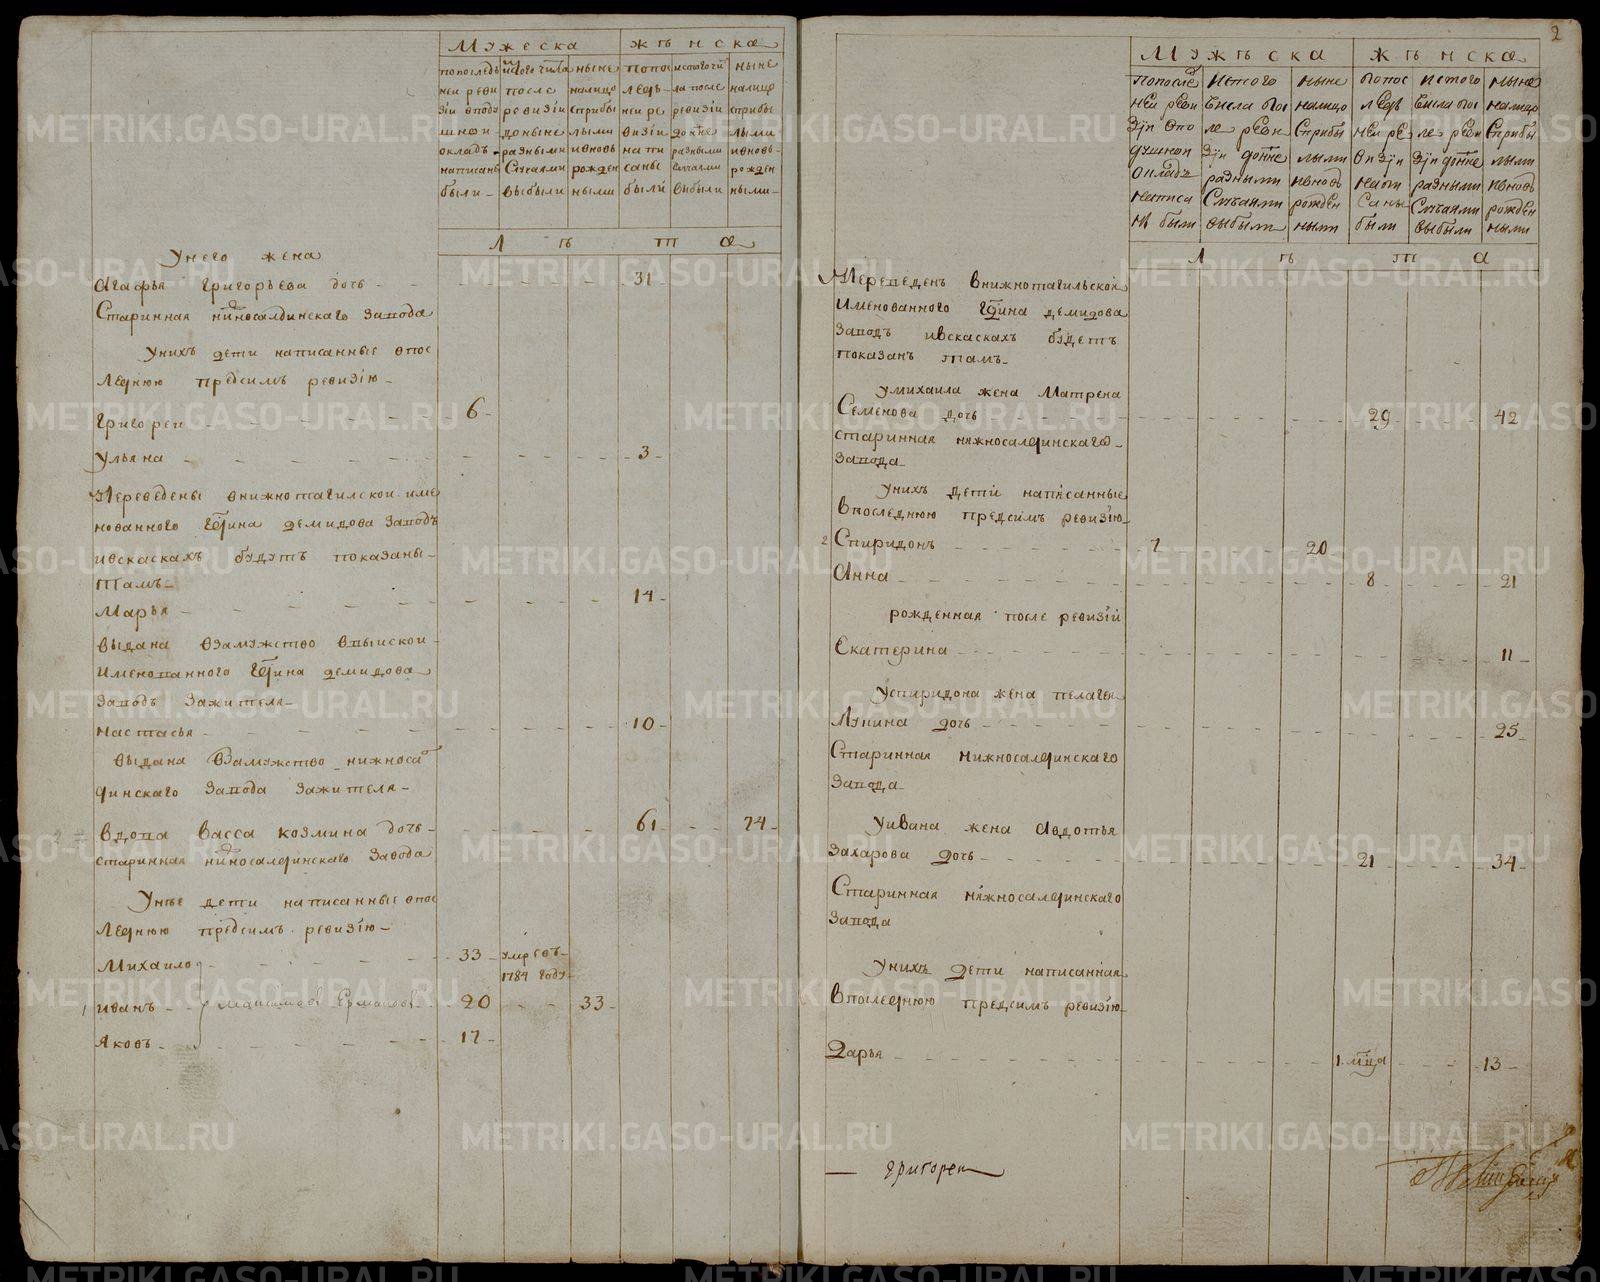 Мужеска
жѣнска
попоследь
неи реви
зіи вподу
шнои
окладъ
написаны
были
истого числа
после
ревизіи
доныне
разными
Случаями
выбыли
ныне
налицо
сприбы
лыми
ивновь
рожден
ными
попо
ледь
неи ре
визіи
напи
саны
были
истого чи
ла после
ревизіи
донне
разными
случаями
выбыли
ныне
налицо
сприбы
лыми
ивновь
рожден
ными
Л ѣ т а
Унего жена
Агафья григорьева дочь 31
Старинная нижносалдинскаго завода
Унихъ дети написанные впос
леднюю предсимъ ревизію
григореи 6
Ульяна 3
Переведены внижнотагилскои име
нованного Гдина демидова заводъ
ивскаскахъ будутъ показаны
тамъ
Марья 14
выдана взамужство выискои
Именованного Гдина демидова
заводъ зажителя
настасья 10
выдана взамужство нижноса
динскаго завода зажителя
вдова васса козмина дочь 61 74
старинная нижносалдинскаго завода
Унѣе дети написанные впос
леднюю предсимъ ревизію
Михаило 33 умрѣ въ
1784 году
1 иванъ Максимовъ Ермаковъ 20 33
Яковъ 17
2
Мужѣска
жѣнска
попослѣ
неи реви
зіи впо
душнои
окладъ
написа
ны были
истого
числа пос
ле реви
зіи донне
разными
Случаями
выбыли
ныне
налицо
Сприбы
лыми
ивновь
рожден
ными
попос
ледь
неи ре
визіи
напи
саны
были
истого
числа пос
ле реви
зіи донне
разными
Случаями
выбыли
ныне
налицо
Сприбы
лыми
ивновь
рожден
ными
Л ѣ т а
Переведенъ внижнотагильскои
Именованного Гдина демидова
Заводъ ивскаскахъ будетъ
показанъ тамъ
умихаила жена Матрена
Семенова дочь 29 42
старинная нижносалдинскаго
Завода
Унихъ дети написанные
впоследнюю предсимъ ревизію
2 Спиридонъ 7 20
Анна 8 21
рожденная после ревизіи
Екатерина 11
Успиридона жена пелагея
Лукина дочь 25
Старинная нижносалдинскаго
Завода
Уивана жена Авдотья
Захарова дочь 21 34
Старинная нижносалдинскаго
Завода
Унихъ дети написанная
впоследнюю предсимъ ревизію
Дарья 1 мца 13
григореи
METRIKI.GASO-URAL.RU